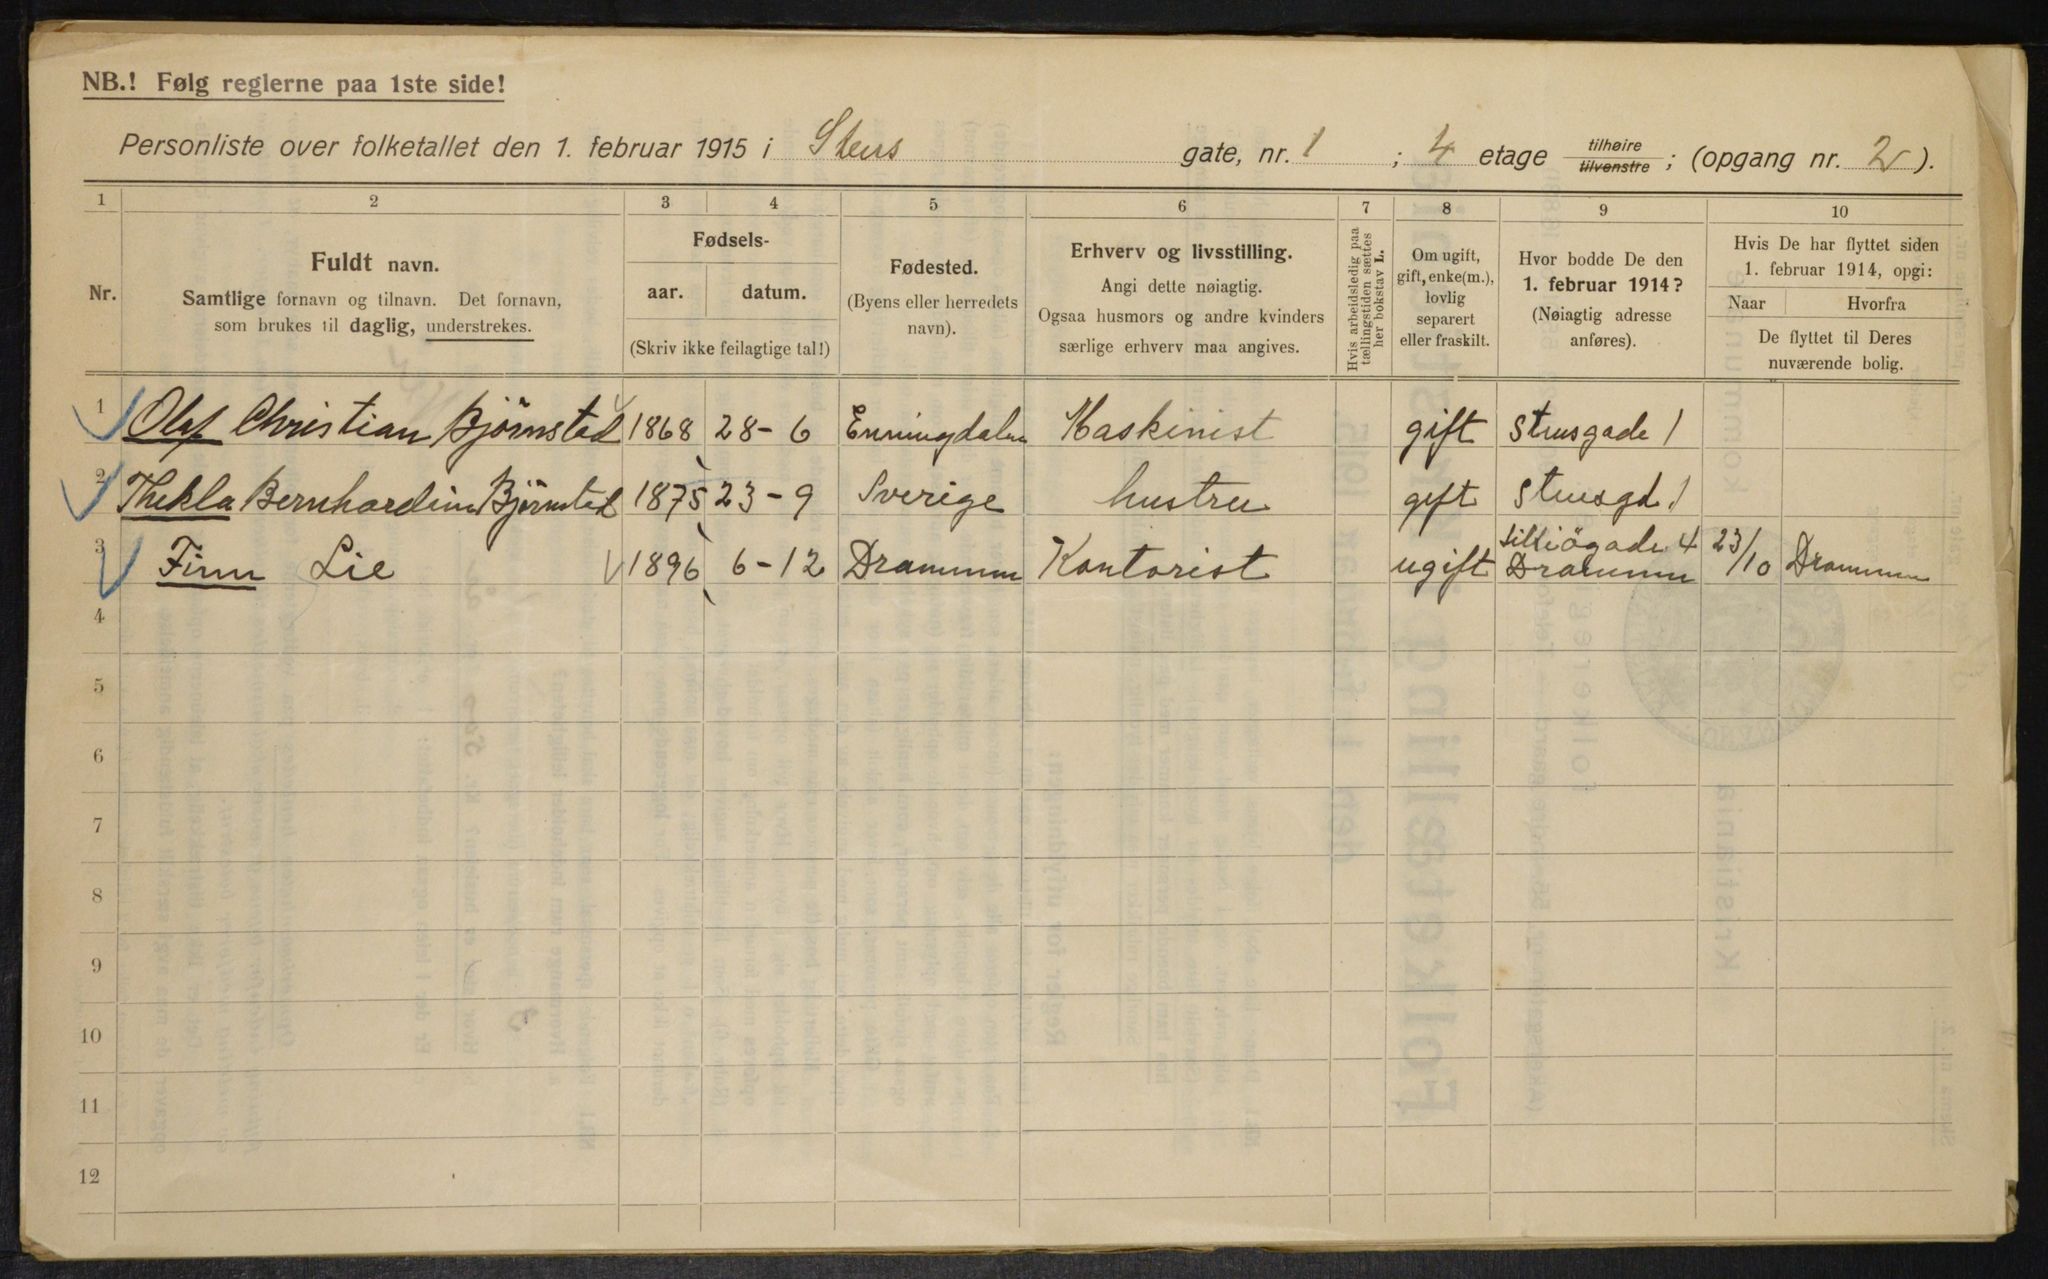 NB.! Følg reglerne paa 1ste side!
Personliste over folketallet den 1. februar 1915 i Stens gate, nr. 1 ; 4 etage tilhøire tilvenstre ; (opgang nr. 2 ).
1 2 3 4 5 6 7 8 9 10
Nr.
Fuldt navn.
Samtlige fornavn og tilnavn. Det fornavn,
som brukes til daglig, understrekes.
Fødsels-
aar. datum.
(Skriv ikke feilagtige tal!)
Fødested.
(Byens eller herredets
navn).
Erhverv og livsstilling.
Angi dette nøiagtig.
Ogsaa husmors og andre kvinders
særlige erhverv maa angives.
Hvis arbeidsledig paa
tællingstiden sættes
her bokstav L.
Om ugift,
gift, enke(m.),
lovlig
separert
eller fraskilt.
Hvor bodde De den
1. februar 1914?
(Nøiagtig adresse
anføres).
Hvis De har flyttet siden
1. februar 1914, opgi:
Naar Hvorfra
De flyttet til Deres
nuværende bolig.
1 Olaf Christian Bjørnstad 1868 28-6 Enningdalen Maskinist gift Stensgade 1
2 Thekla Bernhardine Bjørnstad 1875 23-9 Sverige hustru gift Stensgd 1
3 Finn Lie 1896 6-12 Drammen Kontorist ugift Drammen 23/10 Drammen
4
5
6
7
8
9
10
11
12